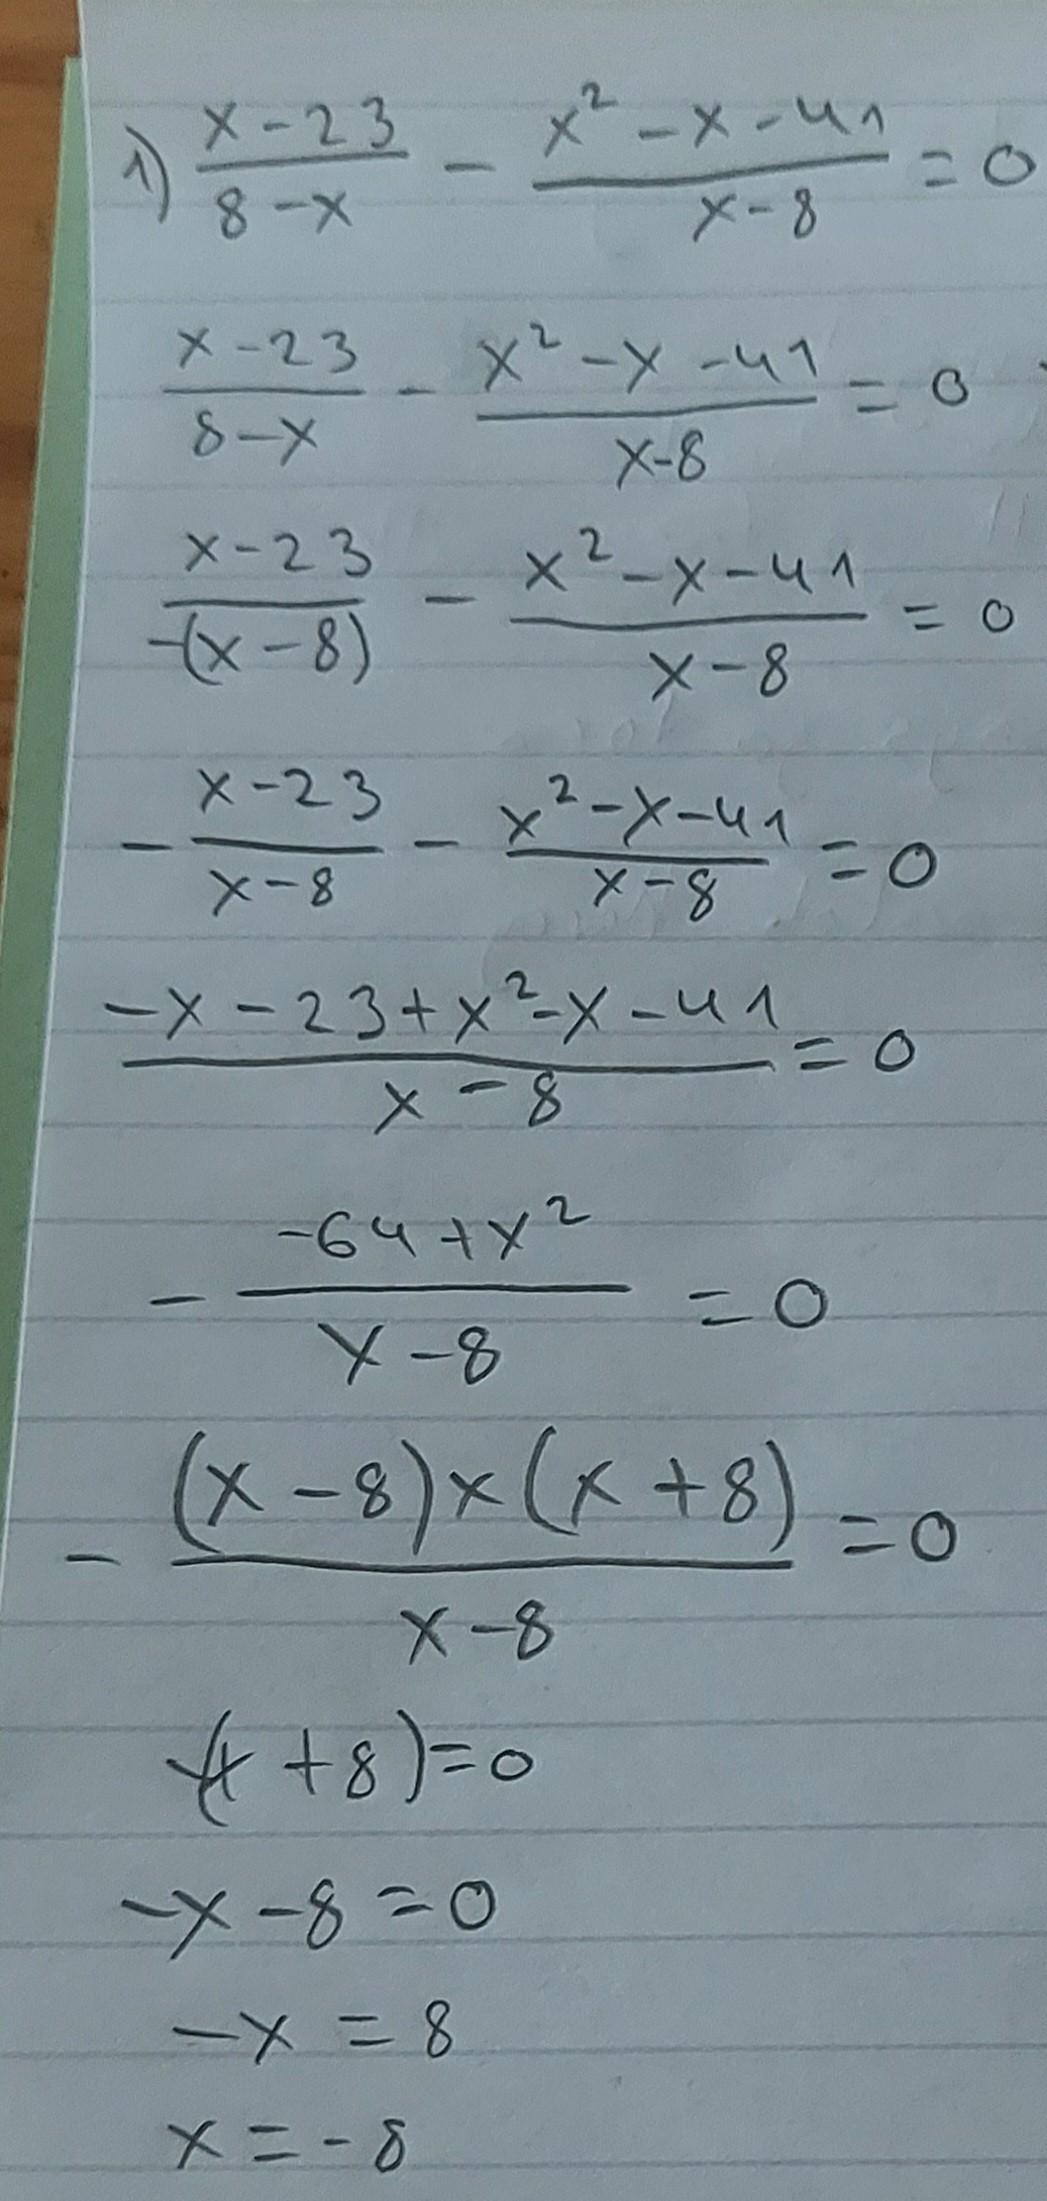 1) (x-23)/(8-x) - (x² - x - 41)/(x-8) = 0
(x-23)/(8-x) - (x² - x - 41)/(x-8) = 0
(x-23)/(-(x-8)) - (x² - x - 41)/(x-8) = 0
- (x-23)/(x-8) - (x² - x - 41)/(x-8) = 0
(-x - 23 + x² - x - 41)/(x-8) = 0
- (-64 + x²)/(x-8) = 0
- ((x-8)×(x+8))/(x-8) = 0
-(x+8) = 0
-x - 8 = 0
-x = 8
x = -8